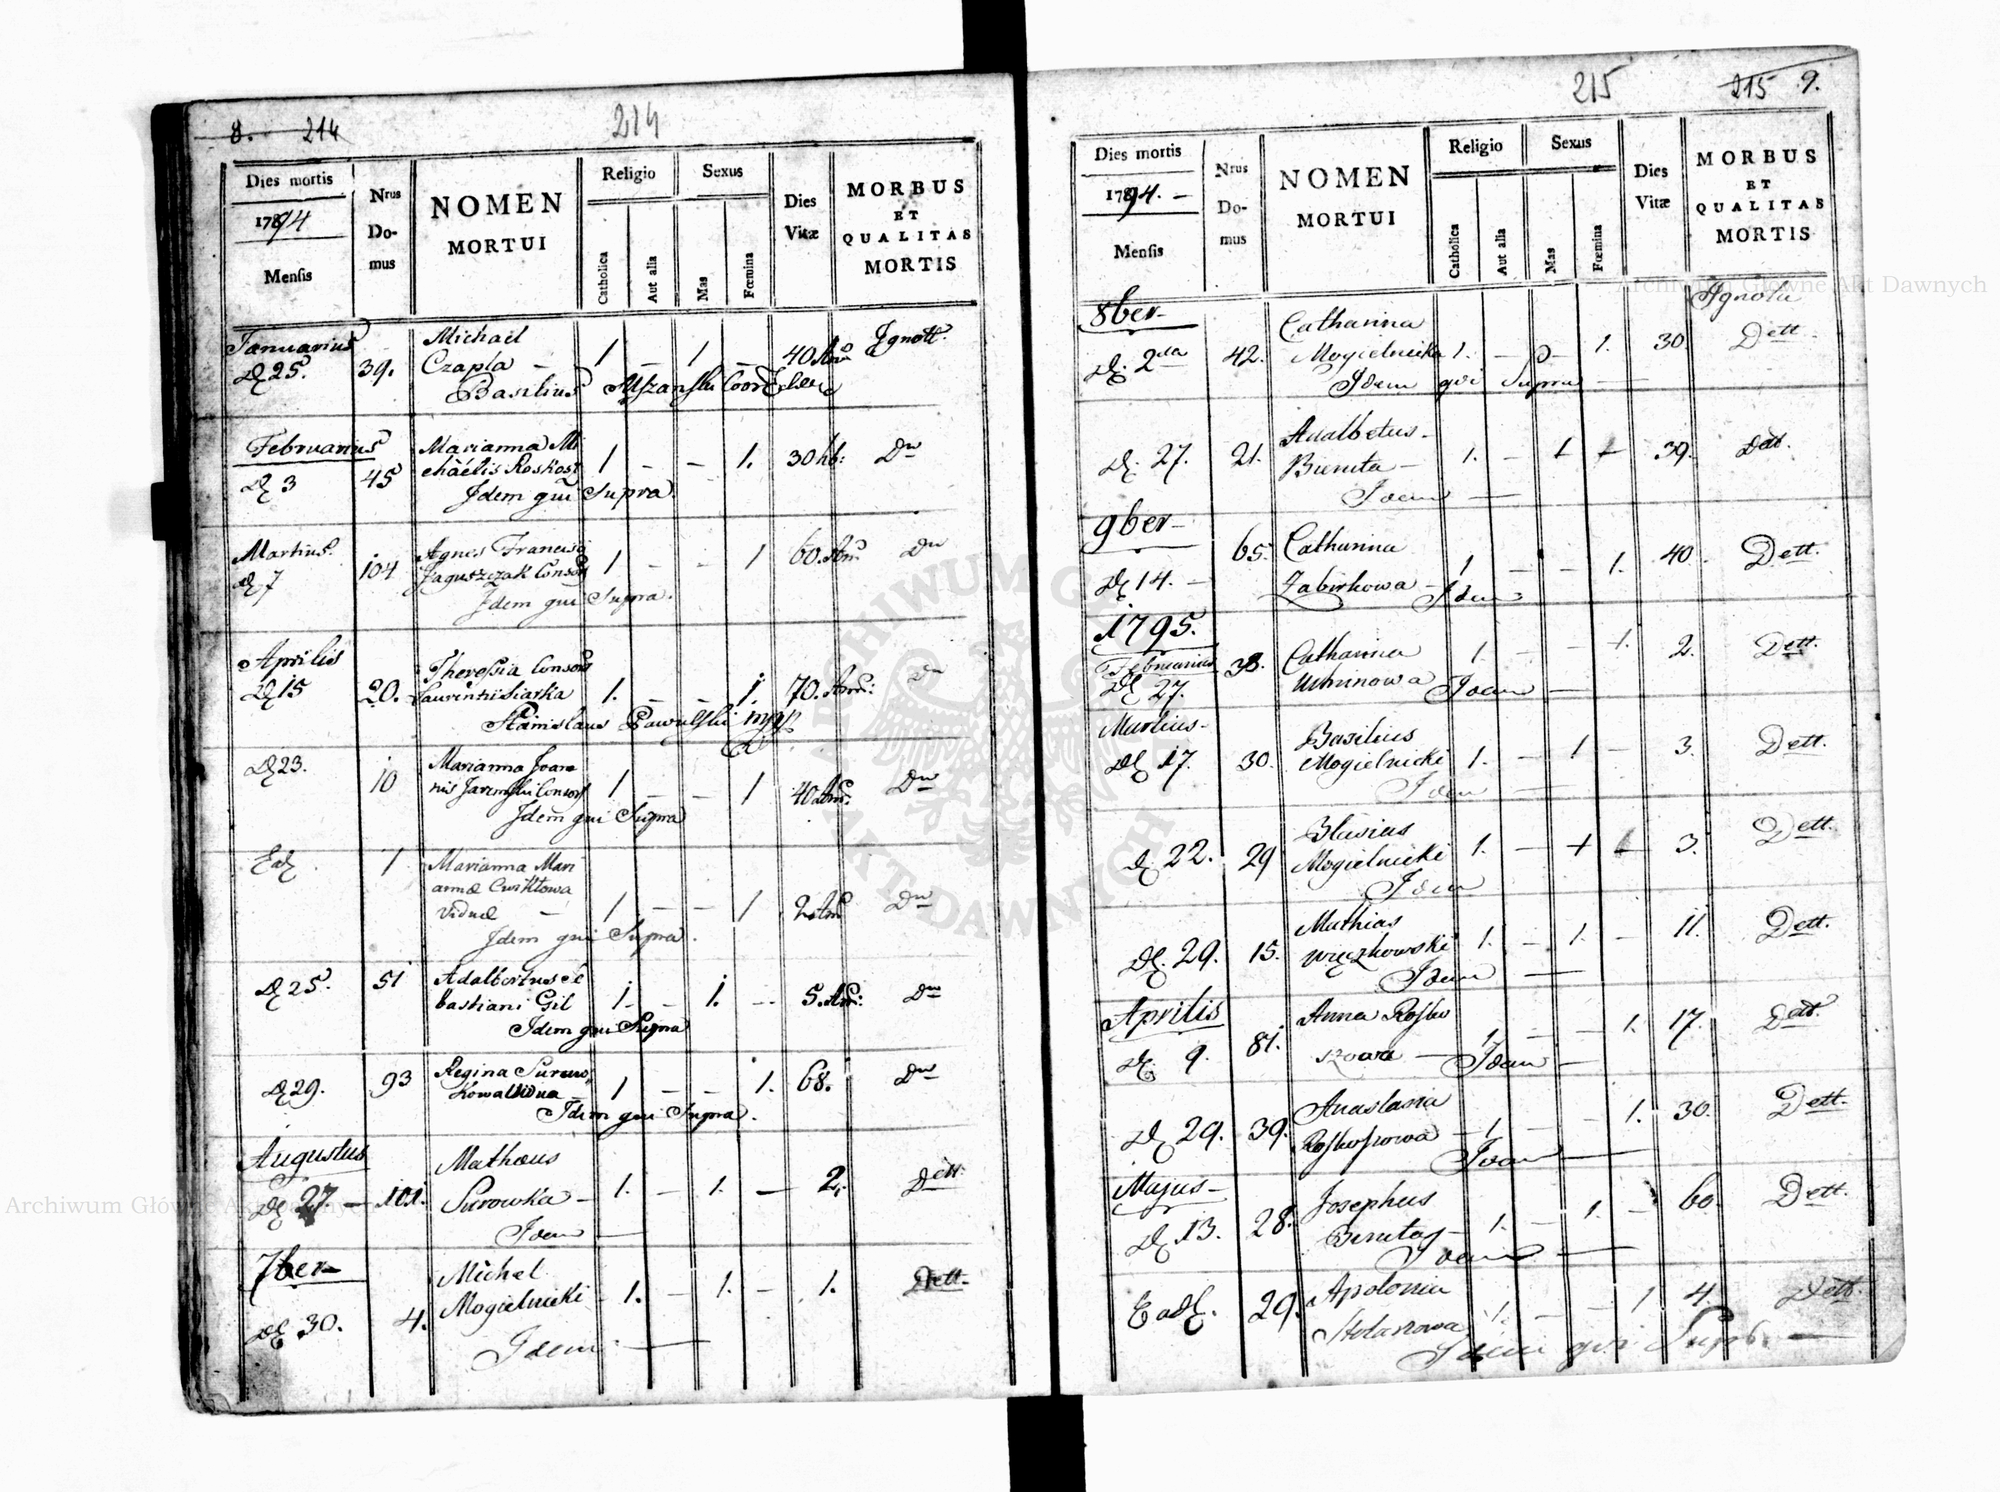 8. 214
214
Dies mortis
1794
Mensis
Nrus
Do-
mus
NOMEN
MORTUI
Religio
Catholica
Aut alia
Sexus
Mas
Fœmina
Dies
Vitæ
MORBUS
ET
QUALITAS
MORTIS
Januarius
D 25. 39. Michael
Czapla – 1 – 1 – 40 Ignott.
Basilius
Februarius
D 3 45 Marianna Mi
chaelis Roskosz 1 – – 1. 30 hb: Dtto
Idem qui Supra.
Martius.
D 7 104 Agnes Francisci
Jaguszczak Consors 1 – – 1 60. Dtto
Idem qui Supra.
Aprilis
D 15 20. Theressia Consors
Laurentii Siarka 1. – – 1. 70. Dtto
Stanislaus Pawulski mpp
D 23. 10 Marianna Joan
nis Consors 1 – – 1 40 Dtto
Idem qui Supra
Ead. 1 Marianna Mari
annæ Cwikłowa
Viduæ – 1 – – 1 2 Dtto
Idem qui Supra.
D 25. 51 Adalbertus Se
bastiani Gil 1. – 1. – 5. Dtto
Idem qui Supra
D 29. 93 Regina Surow
kowa Vidua – 1 – – 1. 68. Dtto
Idem qui Supra.
Augustus
D 27 – 101. Matheus
Surowka – 1. – 1. – 2. Dett
Idem –
7ber –
D 30. 4. Michel
Mogielnicki 1. – 1. – 1. Dett.
Idem –
215
215 9.
Dies mortis
1794. –
Mensis
Nrus
Do-
mus
NOMEN
MORTUI
Religio
Catholica
Aut alia
Sexus
Mas
Fœmina
Dies
Vitæ
MORBUS
ET
QUALITAS
MORTIS
8ber – Ignota
D. 2da 42. Catharina
Mogielnicka 1. – – 1. 30. Dett.
Idem qui Supra –
D. 27. 21. Adalbetus –
Bienita – 1. – 1 – 39. Dett.
Idem –
9ber –
D 14. – 65. Catharina
Zabirkowa – 1 – – 1. 40. Dett.
Idem
1795.
Februarius
D 27. 38. Catharina
1. – – 1. 2. Dett.
Idem –
Martius –
D 17. 30. Basilius
Mogielnicki 1. – 1 – 3. Dett.
Idem
D. 22. 29 Blasius
Mogielnicki 1. – 1 – 3. Dett.
Idem
D. 29. 15. Mathias
Więczkowski 1. – 1. – 11. Dett.
Idem –
Aprilis
D. 9. 81. Anna Rosko
szowa – 1. – – 1. 17. Dett.
Idem –
D 29. 39. Anastasia
Roskoszowa – 1 – – 1. 30. Dett.
Idem –
Majus –
D 13. 28. Josephus
1. – 1. – 60. Dett.
Idem –
Ead. 29. Apolonia
Stolarzowa 1. – – 1 4. Dett.
Idem qui Supra –
Archiwum Główne Akt Dawnych
Archiwum Główne Akt Dawnych
ARCHIWUM GŁÓWNE AKT DAWNYCH